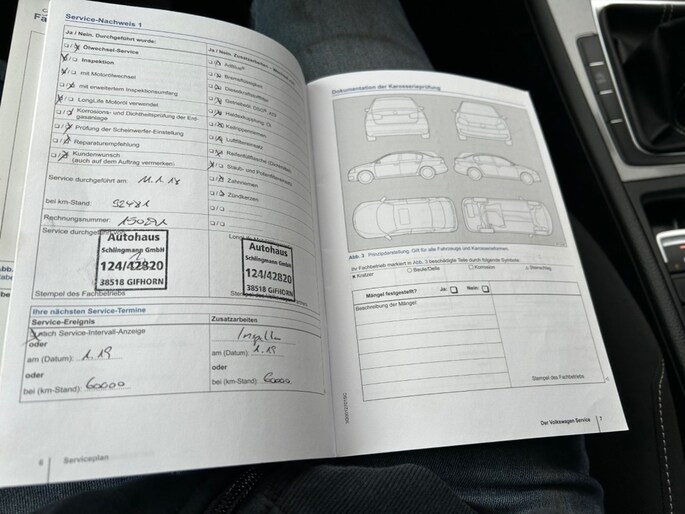 Service-Nachweis 1
Ja / Nein. Durchgeführt wurde:
Ölwechsel-Service
Inspektion
mit Motorölwechsel
mit erweitertem Inspektionsumfang
LongLife Motoröl verwendet
Korrosions- und Dichtheitsprüfung der Erdgasanlage
Prüfung der Scheinwerfer-Einstellung
Reparaturempfehlung
Kundenwunsch
(auch auf dem Auftrag vermerken)
Service durchgeführt am: 11.1.18
bei km-Stand:
Rechnungsnummer:
Service durchgeführt
Autohaus
Schlingmann GmbH
124/42820
38518 GIFHORN
Stempel des Fachbetriebs
Ja / Nein. Zusatzarbeiten
AdBlue®
Bremsflüssigkeit
Dieselkraftstofffilter
Getriebeöl DSG®
Haldexkupplung: Öl
Keilrippenriemen
Luftfiltereinsatz
Staub- und Pollenfiltereinsatz
Zahnriemen
Zündkerzen
LongLife
Autohaus
Schlingmann GmbH
124/42820
38518 GIFHORN
Stempel des
Ihre nächsten Service-Termine
Service-Ereignis
nach Service-Intervall-Anzeige
oder
am (Datum): 1.19
oder
bei (km-Stand): 60000
Zusatzarbeiten
am (Datum): 1.19
oder
bei (km-Stand): 60000
6 Serviceplan
Dokumentation der Karosserieprüfung
Abb. 3 Prinzipdarstellung. Gilt für alle Fahrzeuge und Karosserieformen.
Ihr Fachbetrieb markiert in Abb. 3 beschädigte Teile durch folgende Symbole:
× Kratzer
○ Beule/Delle
□ Korrosion
△ Steinschlag
Mängel festgestellt?
Ja:
Nein:
Beschreibung der Mängel:
Stempel des Fachbetriebs
Der Volkswagen Service 7